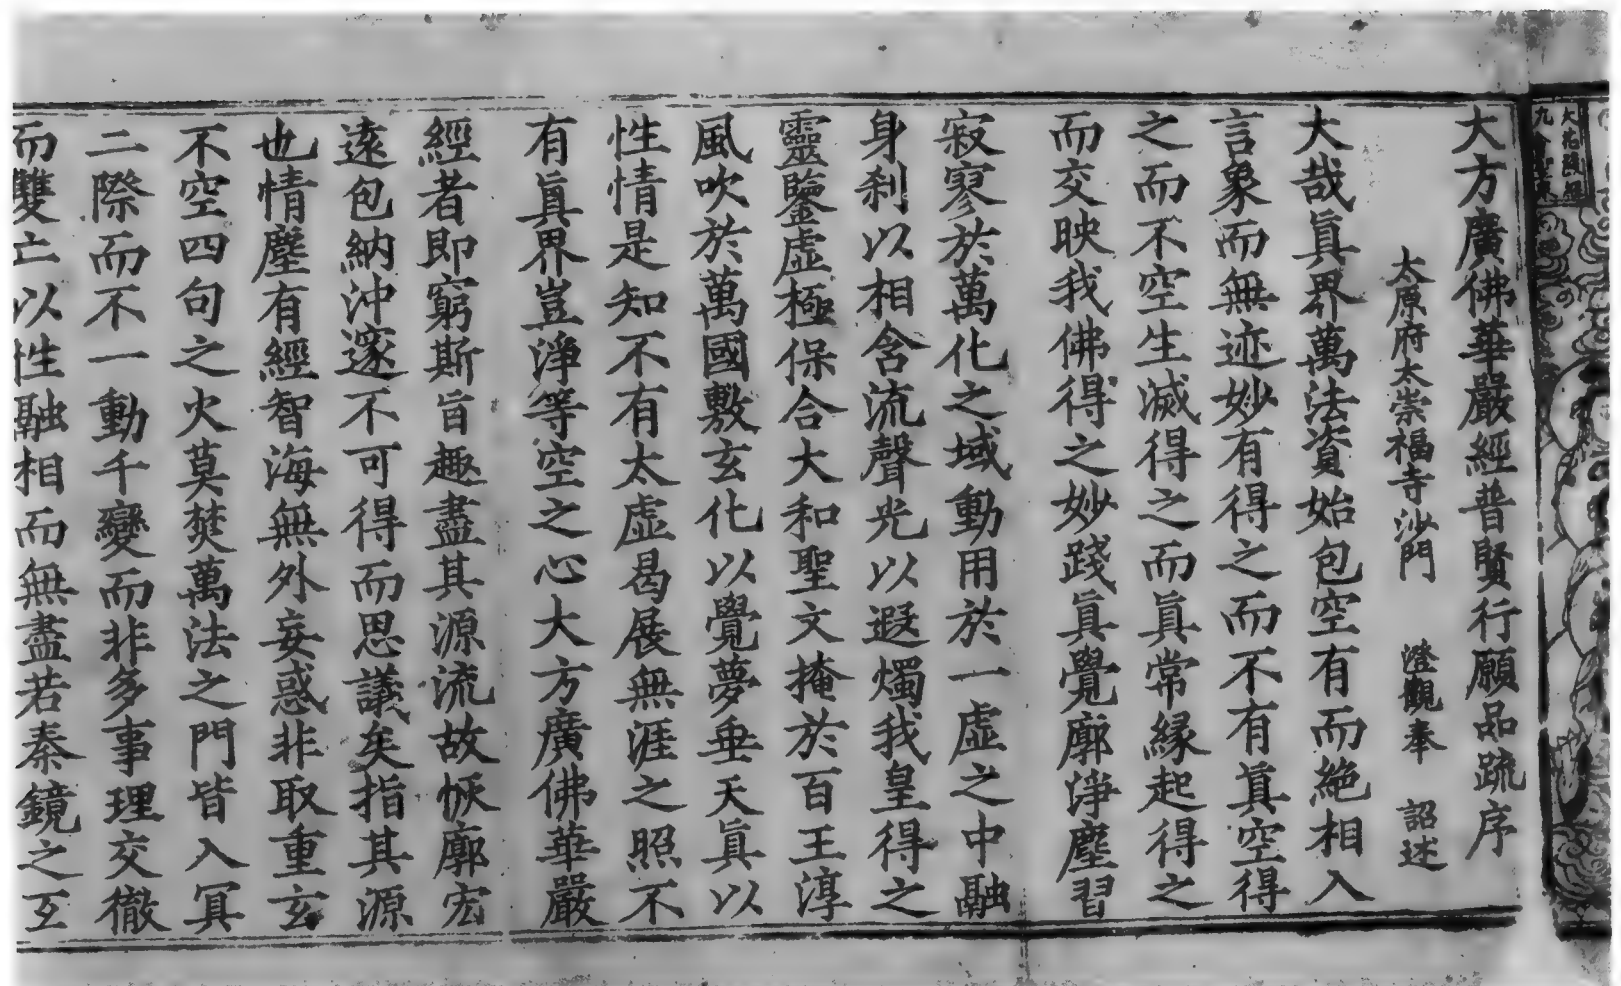 大花嚴經
九會聖衆
大方廣佛華嚴經普賢行願品疏序
太原府大崇福寺沙門 澄觀奉 詔述
大哉眞界萬法資始包空有而絶相入
言象而無迹妙有得之而不有眞空得
之而不空生滅得之而眞常縁起得之
而交映我佛得之妙踐眞覺廓淨塵習
寂寥於萬化之域動用於一虛之中融
身刹以相含流聲光以遐燭我皇得之
靈鑒虛極保合大和聖文掩於百王淳
風吹於萬國敷玄化以覺夢垂天眞以
性情是知不有太虛曷展無涯之照不
有眞界豈淨等空之心大方廣佛華嚴
經者即窮斯旨趣盡其源流故恢廓宏
遠包納沖邃不可得而思議矣指其源
也情塵有經智海無外妄惑非取重玄
不空四句之火莫焚萬法之門皆入冥
二際而不一動千變而非多事理交徹
而雙亡以性融相而無盡若秦鏡之互